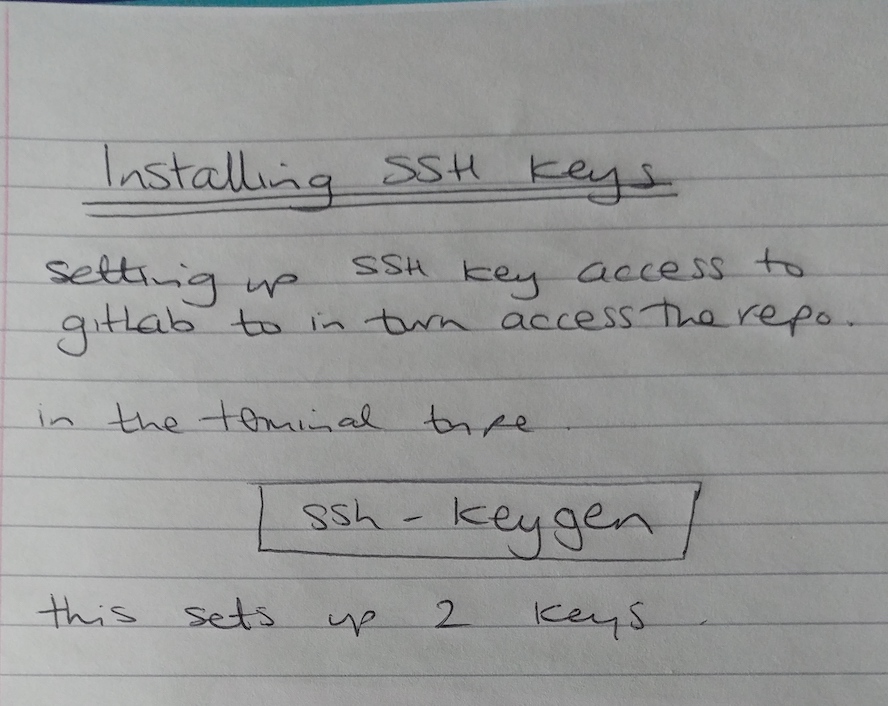 Installing SSH keys
setting up SSH key access to
gitlab to in turn access the repo.
in the terminal type
ssh - keygen
this sets up 2 keys.